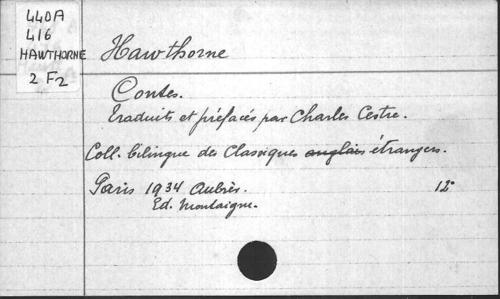 440A
416
HAWTHORNE
2 F2
Hawthorne
Contes.
Traduits et préfacés par Charles Cestre.
Coll. bilingue des Classiques anglais étrangers.
Paris 1934 Aubier. 12°
Ed. Montaigne.